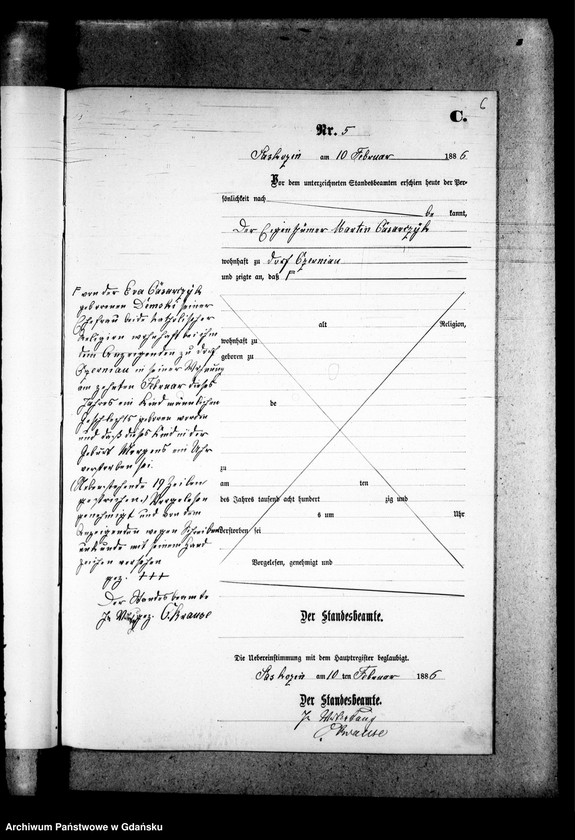 6
C.
Nr. 5
Saskozin am 10 Februar 1886
Vor dem unterzeichneten Standesbeamten erschien heute der Per-
sönlichkeit nach
be kannt,
Der Eigenthümer Martin Cäsarczyk
wohnhaft zu Dorf Czerniau
und zeigte an, daß
von der Eva Cäsarczyk
geborenen Dimski seiner
Ehefrau beide katholischer
Religion wohnhaft bei ihm
dem Anzeigenden zu Dorf
Czerniau in seiner Wohnung
am zehnten Februar dieses
Jahres ein Kind männlichen
Geschlechts geboren worden
und daß dieses Kind in der
Geburt Morgens ein Uhr
verstorben sei.
(Ueberstehende 19 Zeilen
gestrichen.) Vorgelesen
genehmigt und von dem
Anzeigenden wegen Schreibens-
unkunde mit seinem Hand-
zeichen versehen
gez. +++
Der Standesbeamte
gez. C. Krause
alt Religion,
wohnhaft zu
geboren zu
de
zu
am ten
des Jahres tausend acht hundert zig und
s um Uhr
verstorben sei
Vorgelesen, genehmigt und
Der Standesbeamte.
Die Uebereinstimmung mit dem Hauptregister beglaubigt.
Saskozin am 10 ten Februar 1886
Der Standesbeamte.
In Vertretung
C Krause
Archiwum Państwowe w Gdańsku